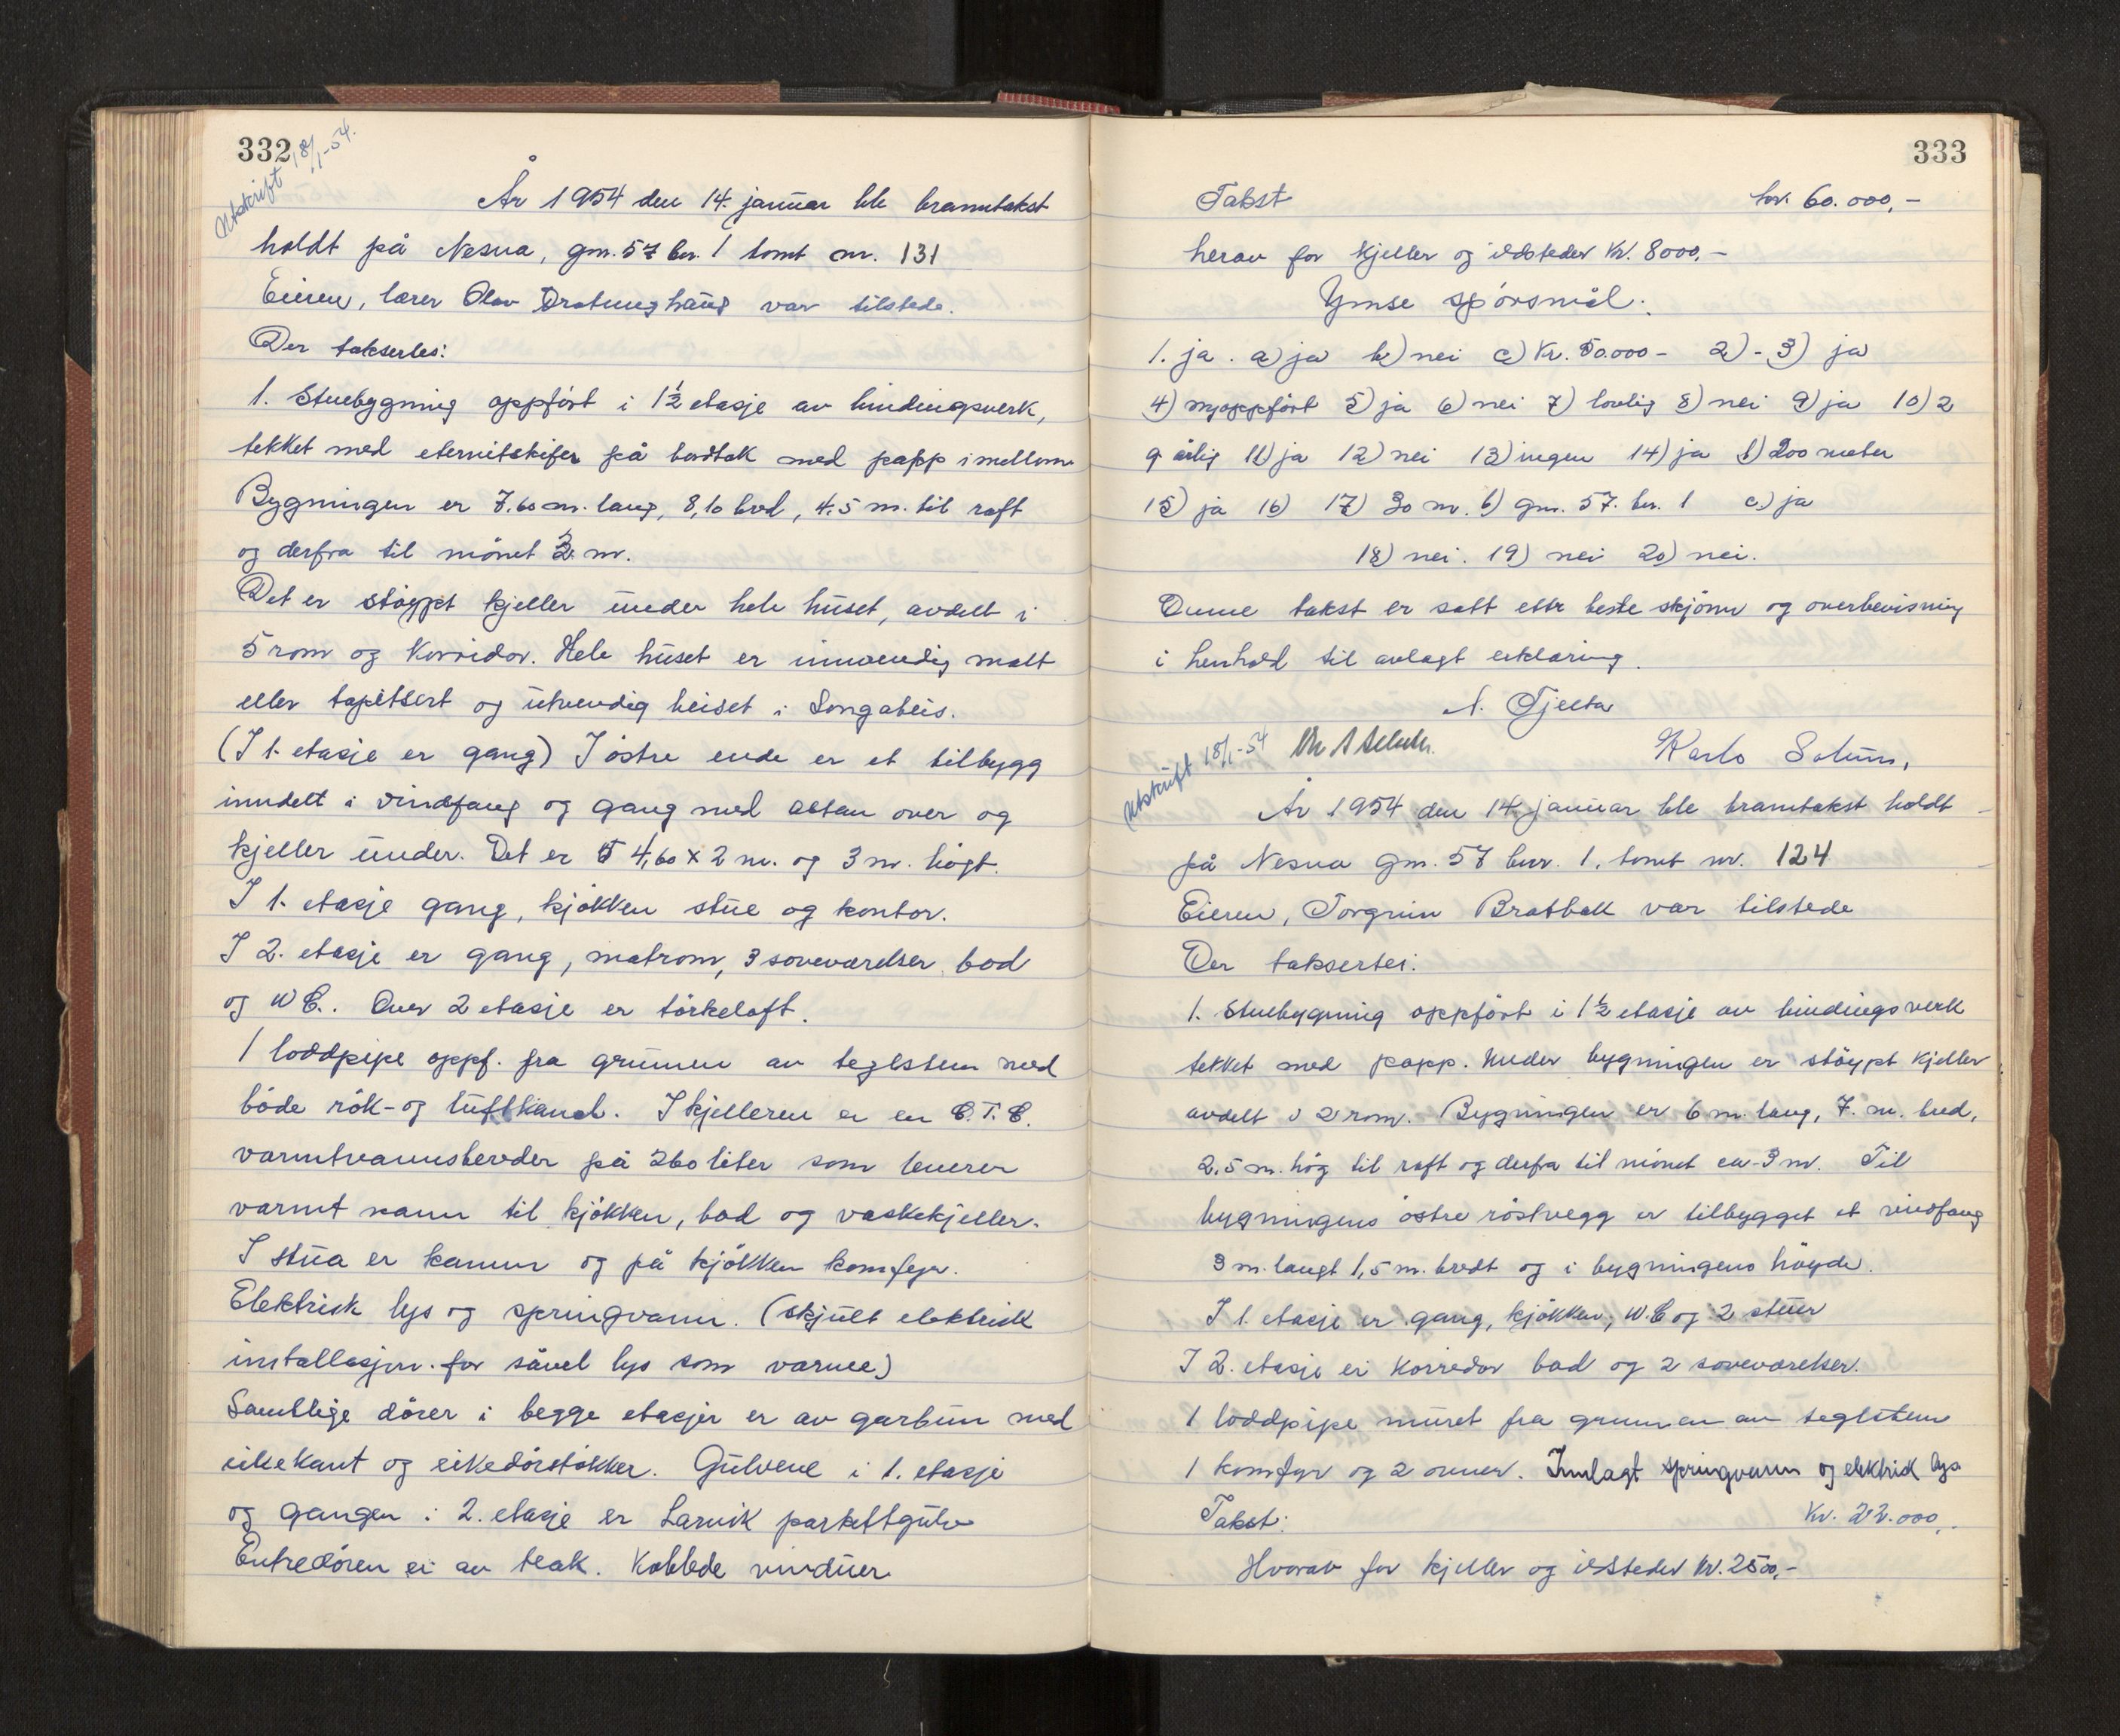 332
Utskrift 18/1-54.
År 1954 den 14. januar ble branntakst
holdt på Nesna, gnr. 57 bnr. 1 tomt nr. 131
Eieren, lærer Olav Dratunghaug var tilstede.
Der taksertes:
1. Stuebygning oppfört i 1½ etasje av bindingsverk,
tekket med eternitskifer på bordtak med papp imellom
Bygningen er 7.60 m. lang, 8,10 bred, 4.5 m. til raft
og derfra til mönet 3 m.
Det er stöypt kjeller under hele huset, avdelt i
5 rom og Korridor. Hele huset er innvendig malt
eller tapetsert og utvendig beiset i Longabeis.
(I 1. etasje er gang) I östre ende er et tilbygg
inndelt i vindfang og gang med altan over og
kjeller under. Det er 4,60 x 2 m. og 3 m. högt.
I 1. etasje gang, kjökken stue og kontor.
I 2. etasje er gang, matrom, 3 soveværelser bad
og W C.. Over 2 etasje er törkeloft.
1 loddpipe oppf. fra grunnen av teglsten med
både rök- og luftkanal. I kjelleren er en C.T.C.
varmtvannsbereder på 260 liter som leverer
varmt vann til kjökken, bad og vaskekjeller.
I stua er kamin og på kjökken komfyr.
Elektrisk lys og springvann. (skjult elektrisk
installasjon for såvel lys som varme)
Samtlige dörer i begge etasjer er av garbun med
eikekant og eikedörstokker. Gulvene i 1. etasje
og gangen i 2. etasje er Larvik parkettgulv
Entredören er av teak. Koblede vinduer
333
Takst kr. 60.000,-
herav for kjeller og ildsteder Kr. 8000.-
Ymse spörsmål.
1. ja. a) ja b) nei c) Kr. 50.000- 2) - 3) ja
4) nyoppfört 5) ja 6) nei 7) lovlig 8) nei 9) ja 10) 2
g årlig 11) ja 12) nei 13) ingen 14) ja b) 200 meter
15) ja 16) 17) 30 m. b) gnr. 57. bnr. 1 c) ja
18) nei. 19) nei 20) nei.
Denne takst er satt etter beste skjönn og overbevisning
i henhold til avlagt erklæring.
N. Tjetta
Karlo Solum,
Utskrift 18/1-54
År 1954 den 14. januar ble branntakst holdt
på Nesna gnr. 57 bnr. 1. tomt nr. 124
Eieren, Torgrim Bratbakk var tilstede
Der taksertes:
1. Stuebygning oppfört i 1½ etasje av bindingsverk
tekket med papp. Under bygningen er stöypt kjeller
avdelt i 2 rom. Bygningen er 6 m. lang, 7. m. bred,
2.5 m. hög til raft og derfra til mönet ca. 3 m. Til
bygningens östre röstvegg er tilbygget et vindfang
3 m. langt 1,5 m. bredt og i bygningens höyde.
I 1. etasje er gang, kjökken, W.C og 2 stuer
I 2. etasje er korredor bad og 2 soveværelser.
1 loddpipe muret fra grunnen av teglsten
1 komfyr og 2 ovner. Innlagt springvann og elektrisk lys
Takst: Kr. 22.000,.
Hvorav for kjeller og ildsteder kr. 2500,-